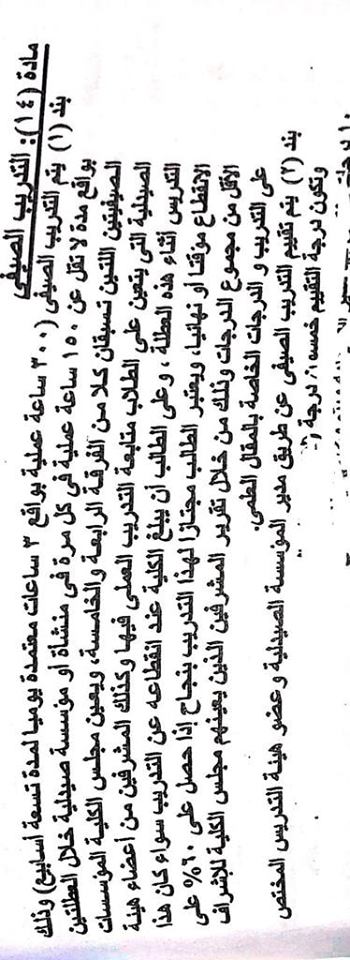 مادة (١٤): التدريب الصيفى
بند (١) يتم التدريب الصيفى (٣٠٠ ساعة عملية بواقع ٣ ساعات معتمدة يوميا لمدة تسعة اسابيع) وذلك
بواقع مدة لا تقل عن ١٥٠ ساعة عملية فى كل مرة فى منشاة او مؤسسة صيدلية خلال العطلتين
الصيفيتين اللتين تسبقان كلا من الفرقة الرابعة والخامسة، ويعين مجلس الكلية المؤسسات
الصيدلية التى يتعين على الطلاب متابعة التدريب العملى فيها وكذلك المشرفين من أعضاء هيئة
التدريس أثناء هذه العطلة ، وعلى الطالب أن يبلغ الكلية عند انقطاعه عن التدريب سواء كان هذا
الانقطاع موقتا أو نهائيا، ويعتبر الطالب مجتازا لهذا التدريب بنجاح إذا حصل على ٦٠% على
الأقل من مجموع الدرجات وذلك من خلال تقرير المشرفين الذين يعينهم مجلس الكلية للإشراف
على التدريب و الدرجات الخاصة بالمقال العلمى.
بند (٢) يتم تقييم التدريب الصيفى عن طريق مدير المؤسسة الصيدلية و عضو هيئة التدريس المختص
وتكون درجة التقييم خمسون درجة